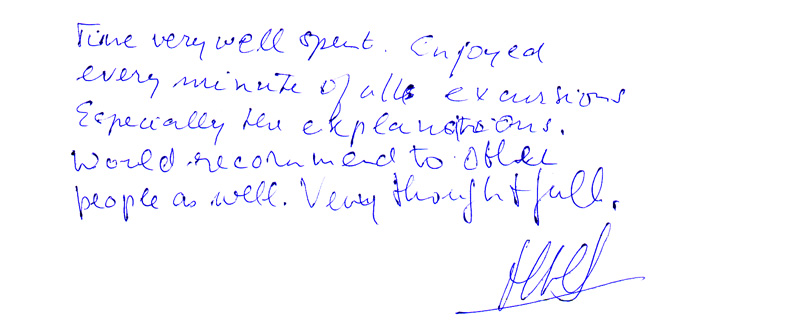 Time very well spent. Enjoyed
every minute of all excursions
Especially the explanations.
Would recommend to other
people as well. Very thoughtfull.